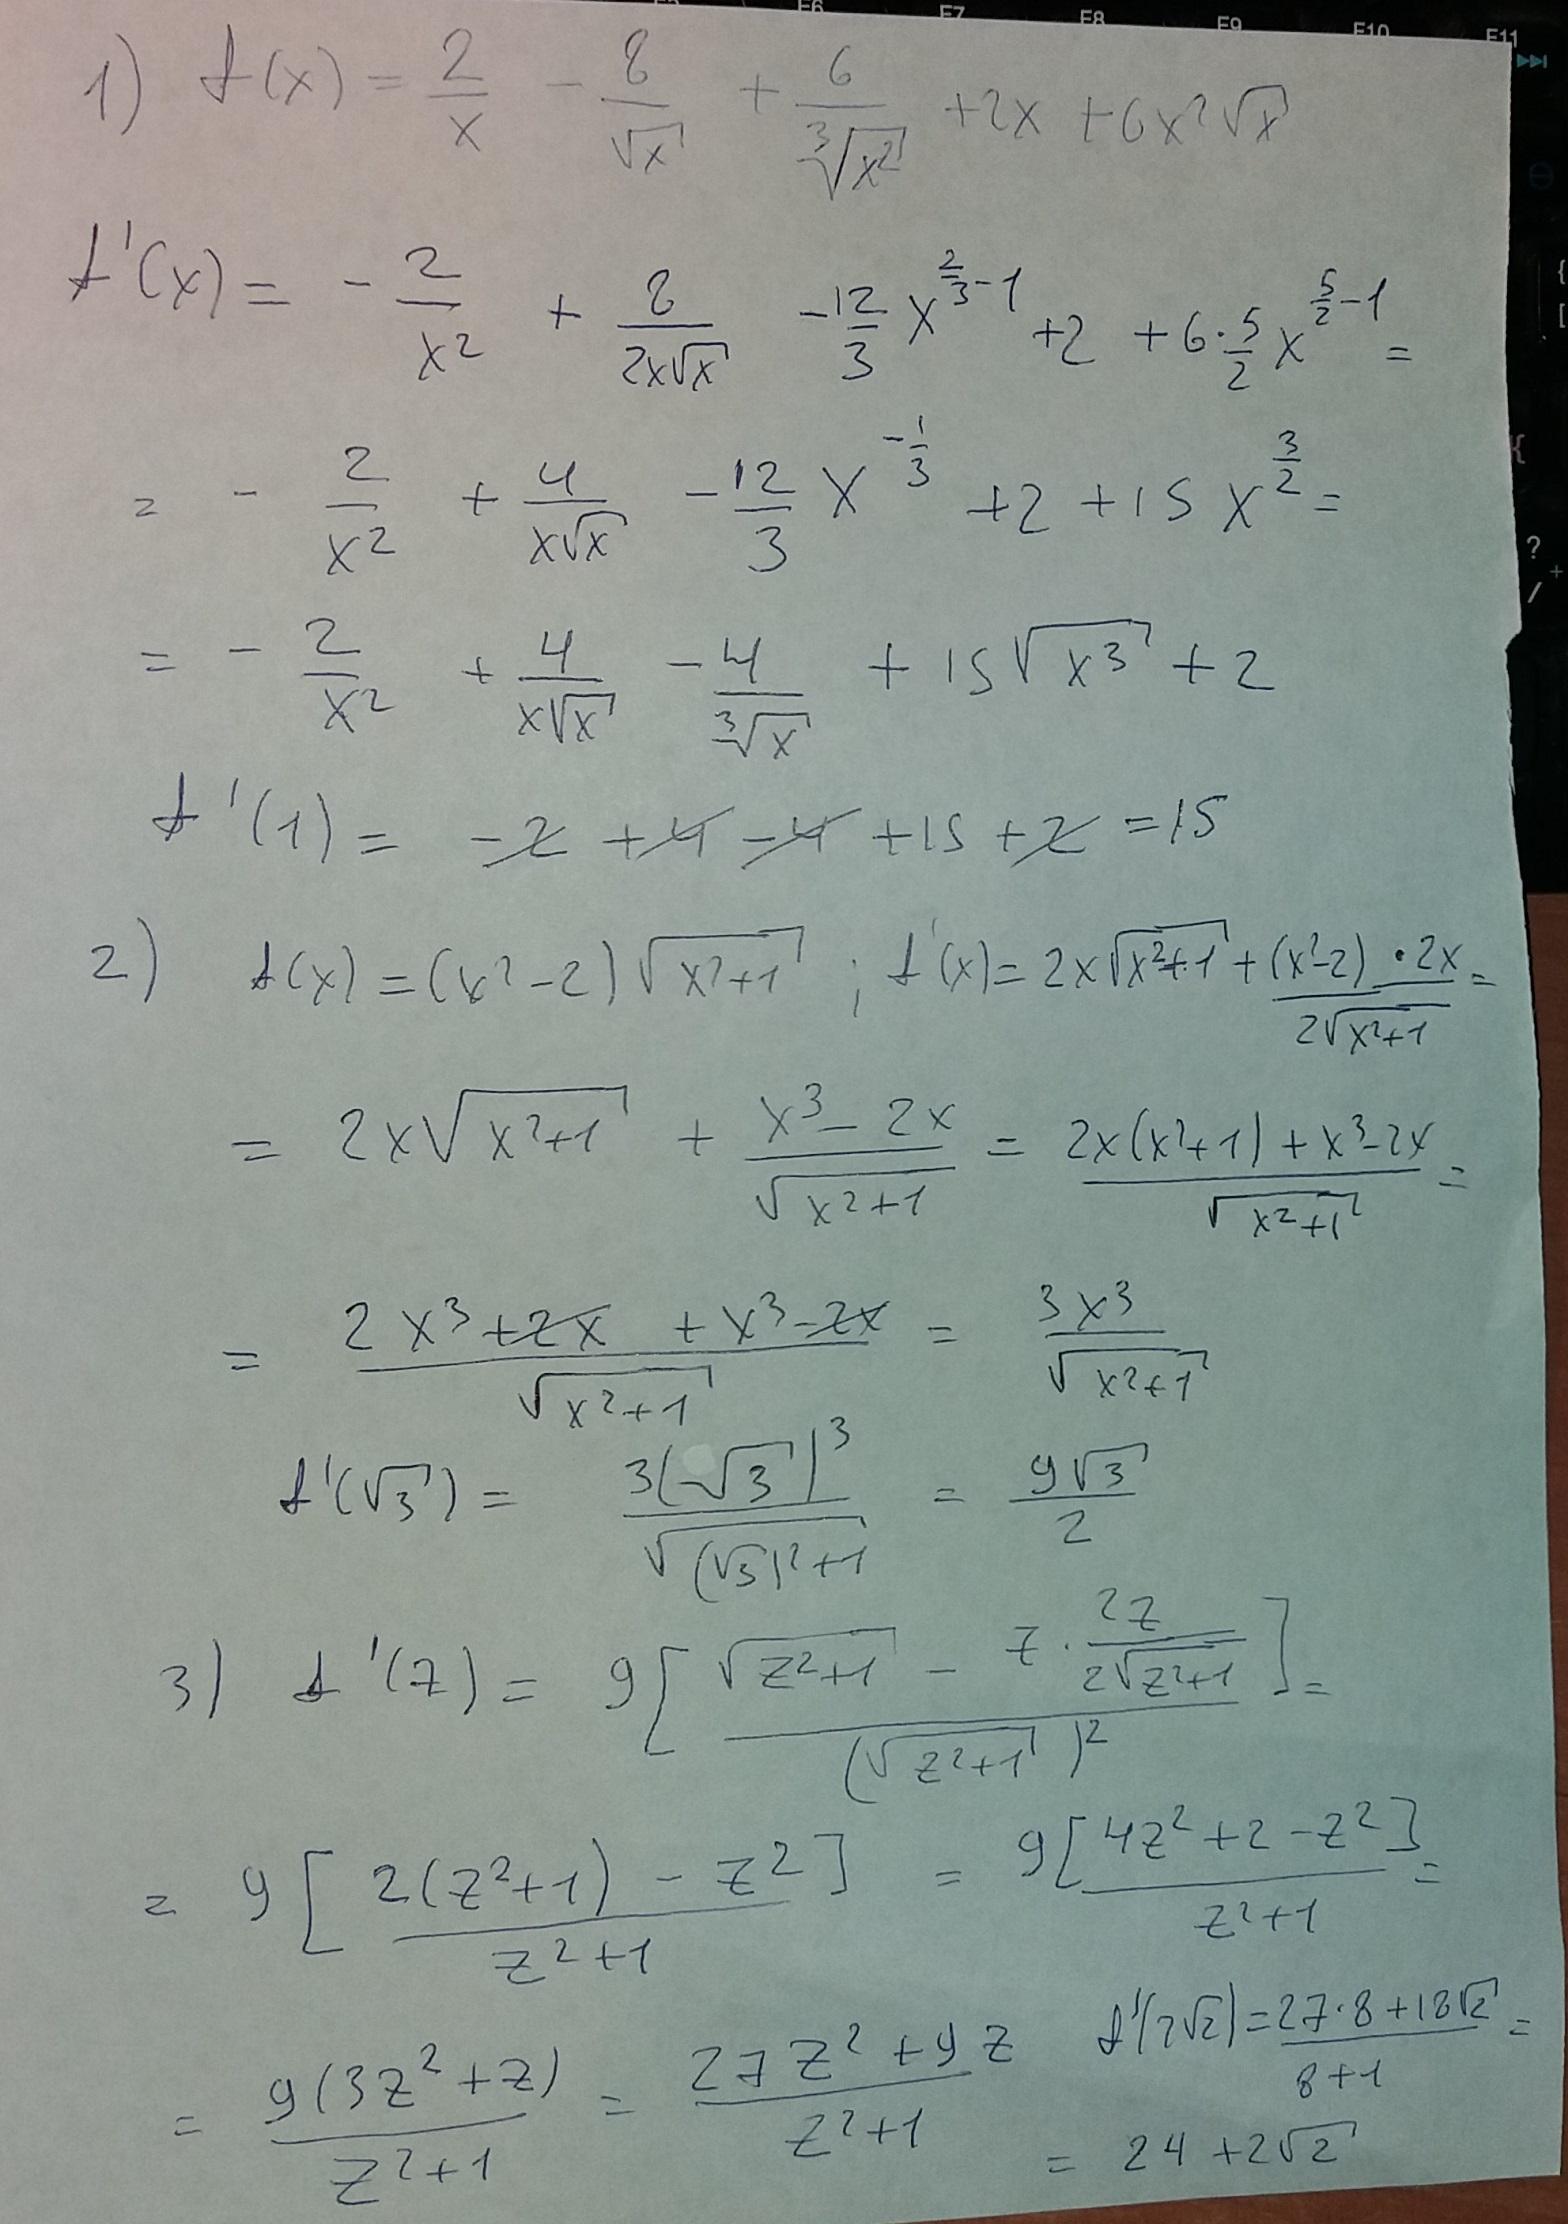 F6 F7 F8 F9 F10 F11
1) f(x) = 2/x - 8/√x + 6/∛(x²) + 2x + 6x²√x
f'(x) = - 2/x² + 8/(2x√x) - 12/3 x^(2/3 - 1) + 2 + 6 · 5/2 x^(5/2 - 1) =
= - 2/x² + 4/(x√x) - 12/3 x^(-1/3) + 2 + 15 x^(3/2) =
= - 2/x² + 4/(x√x) - 4/∛x + 15√(x³) + 2
f'(1) = -2 + 4 - 4 + 15 + 2 = 15
2) f(x) = (x² - 2)√(x² + 1) ; f'(x) = 2x√(x² + 1) + (x² - 2) · 2x/(2√(x² + 1)) =
= 2x√(x² + 1) + (x³ - 2x)/√(x² + 1) = (2x(x² + 1) + x³ - 2x)/√(x² + 1) =
= (2x³ + 2x + x³ - 2x)/√(x² + 1) = 3x³/√(x² + 1)
f'(√3) = 3(√3)³/√((√3)² + 1) = 9√3/2
3) f'(z) = 9[(√(z² + 1) - z · 2z/(2√(z² + 1)))/(√(z² + 1))²] =
= 9[2(z² + 1) - z²]/(z² + 1) = 9[4z² + 2 - z²]/(z² + 1) =
= 9(3z² + z)/(z² + 1) = (27z² + 9z)/(z² + 1) f'(2√2) = (27·8 + 18√2)/(8 + 1) =
= 24 + 2√2